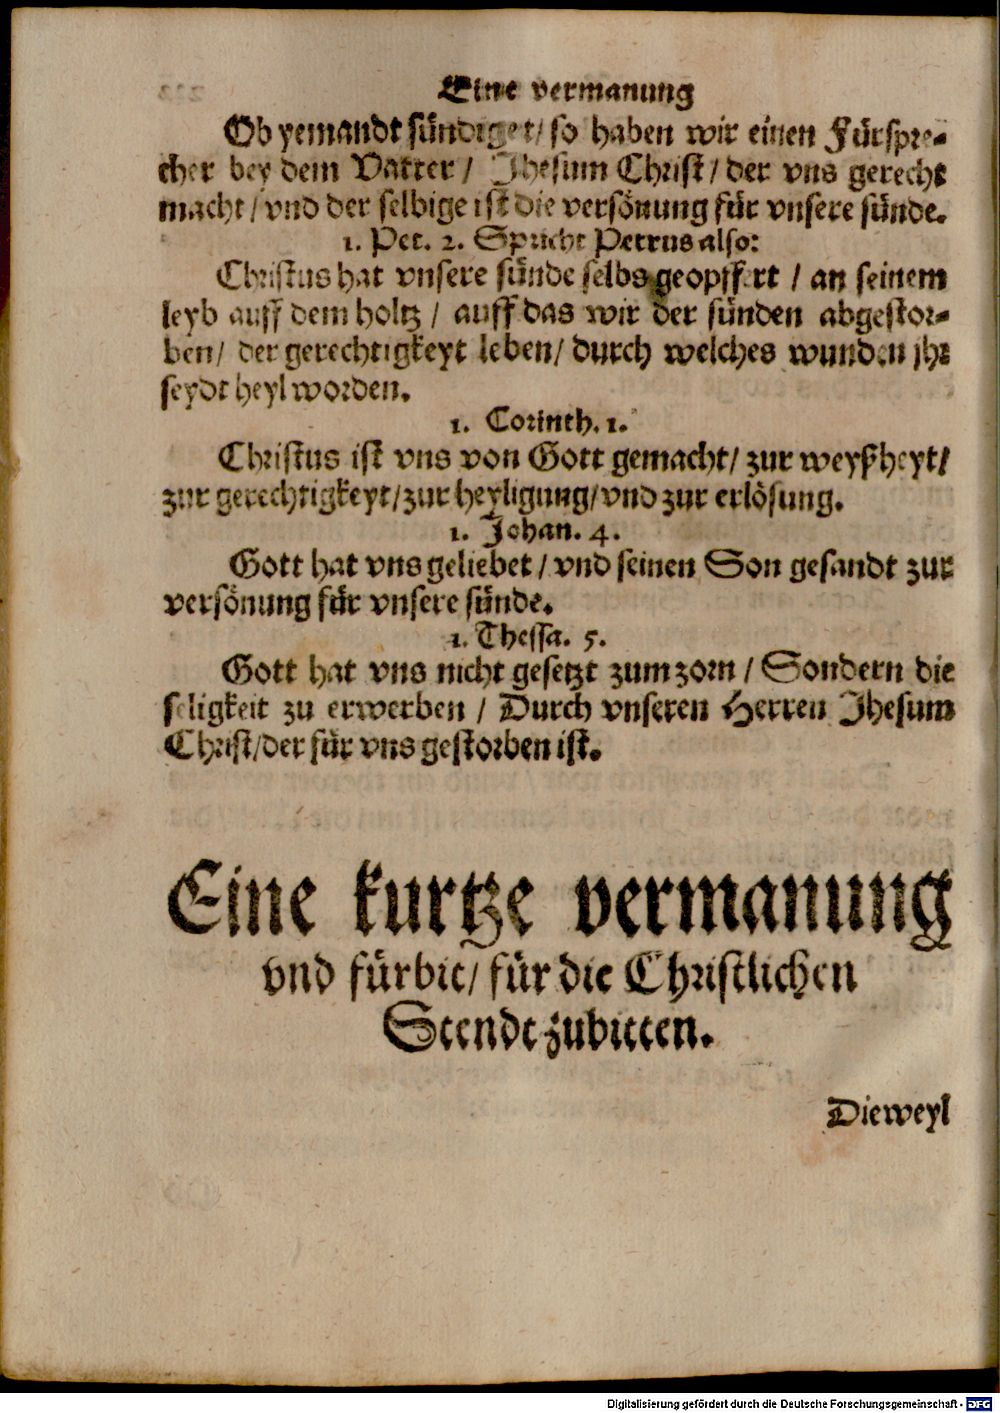 Eine vermanung
Ob yemandt sündiget/ so haben wir einen Fürspre-
cher bey dem Vatter / Jhesum Christ / der vns gerecht
macht / vnd der selbige ist die versönung für vnsere sünde.
1. Pet. 2. Spricht Petrus also:
Christus hat vnsere sünde selbs geopffert / an seinem
leyb auff dem holtz / auff das wir der sünden abgestor-
ben/ der gerechtigkeyt leben/ durch welches wunden jhr
seydt heyl worden.
1. Corinth. 1.
Christus ist vns von Gott gemacht/ zur weyßheyt/
zur gerechtigkeyt/ zur heyligung/ vnd zur erlösung.
1. Johan. 4.
Gott hat vns geliebet / vnd seinen Son gesandt zur
versönung für vnsere sünde.
1. Thessa. 5.
Gott hat vns nicht gesetzt zum zorn / Sondern die
seligkeit zu erwerben / Durch vnseren Herren Jhesum
Christ/ der für vns gestorben ist.
Eine kurtze vermanung
vnd fürbit/ für die Christlichen
Stende zubitten.
Dieweyl
Digitalisierung gefördert durch die Deutsche Forschungsgemeinschaft - DFG